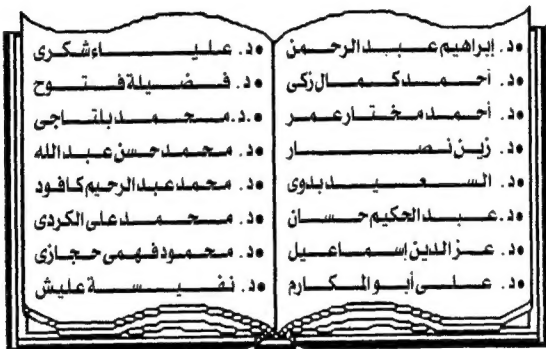 •د. إبراهيم عبد الرحمن
•د. أحمد كمال زكى
•د. أحمد مختار عمر
•د. زين نصار
•د. السعيد بدوى
•د. عبد الحكيم حسان
•د. عز الدين إسماعيل
•د. على أبو المكارم
•د. علياء شكرى
•د. فضيلة فتوح
•د. محمد بلتاجى
•د. محمد حسن عبد الله
•د. محمد عبد الرحيم كافود
•د. محمد على الكردى
•د. محمود فهمى حجازى
•د. نفيسة عليش